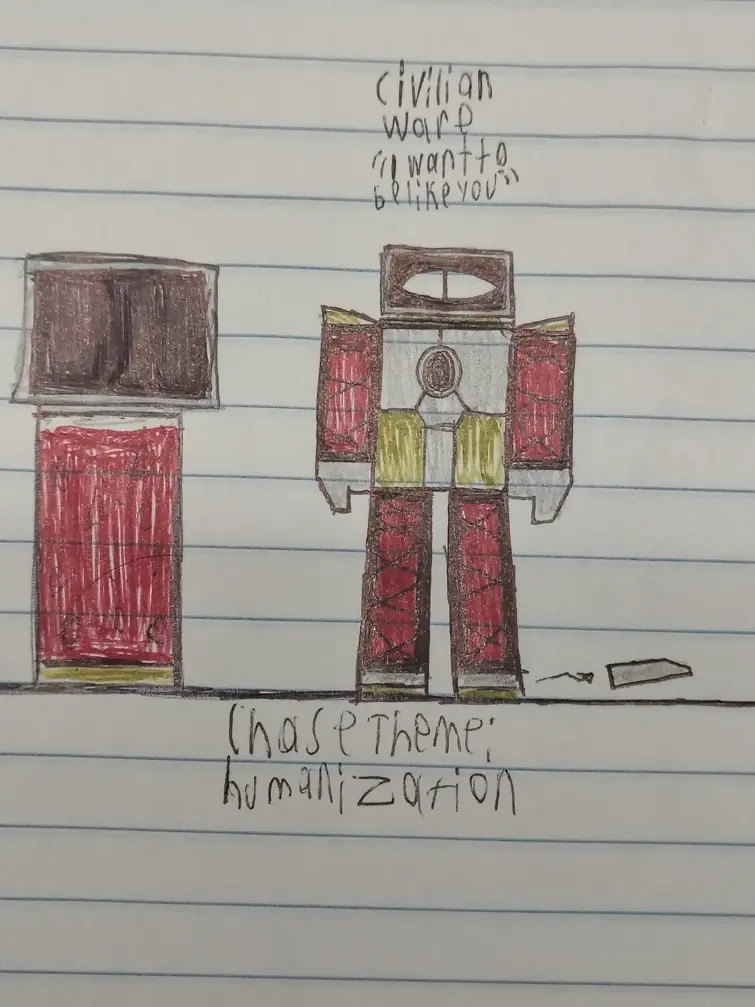 civilian
ware
"I want to
be like you"
Chase Theme:
humanization